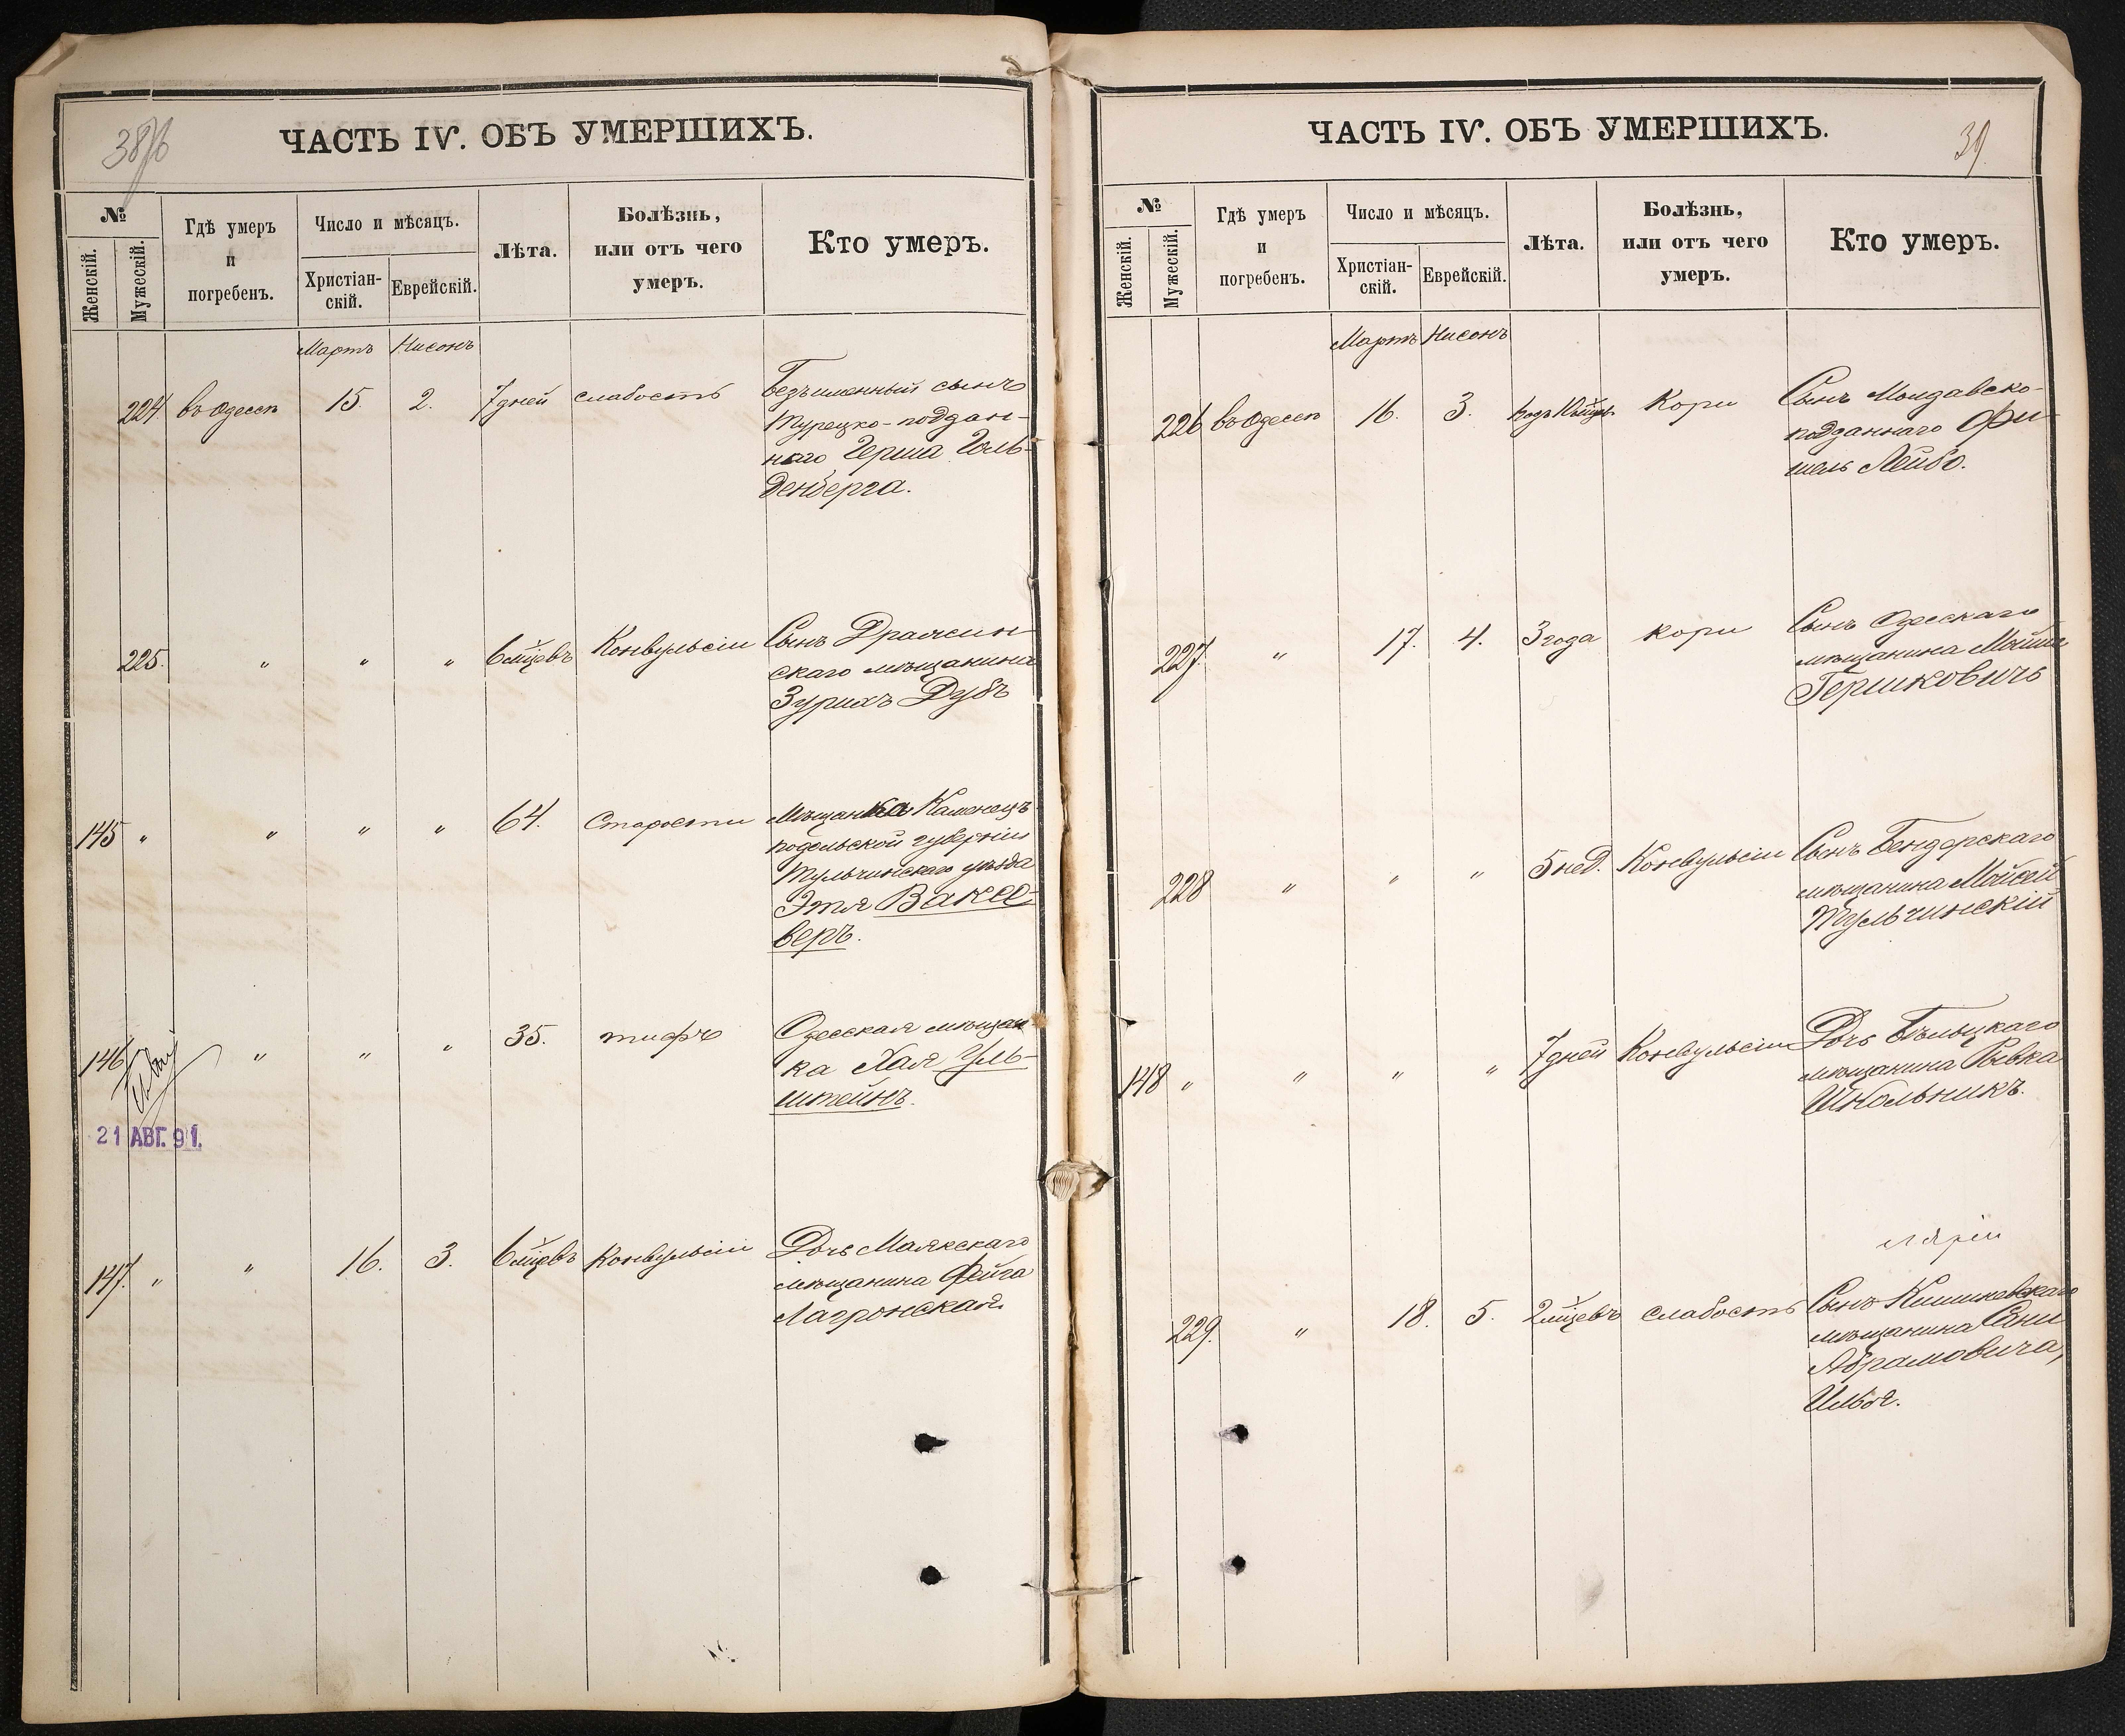 38/6
ЧАСТЬ IV. ОБЪ УМЕРШИХЪ.
№
Женскій.
Мужескій.
Гдѣ умеръ
и
погребенъ.
Число и мѣсяцъ.
Христіан-
скій.
Еврейскій.
Лѣта.
Болѣзнь,
или отъ чего
умеръ.
Кто умеръ.
Мартъ Нисонъ
224. въ Одессѣ 15. 2. 7 дней слабость Безъименный сынъ
Турецко-поддан-
наго Герша Голь-
денберга.
225. " " " 6 мцевъ Конвульсіи Сынъ
скаго мѣщанина
Зурихъ Дубъ
145 " " " " 64. Старости Мѣщанка Каменецъ-
подольской губерніи
Тульчинскаго уѣзда
Этя Ваксе-
веръ.
146 " " " 35. тифъ Одесская мѣщан-
ка Хая Уль-
штейнъ.
21 АВГ. 91.
147. " " 16. 3. 6 мцевъ Конвульсіи Дочь Маякскаго
мѣщанина Фейга
39
ЧАСТЬ IV. ОБЪ УМЕРШИХЪ.
№
Женскій.
Мужескій.
Гдѣ умеръ
и
погребенъ.
Число и мѣсяцъ.
Христіан-
скій.
Еврейскій.
Лѣта.
Болѣзнь,
или отъ чего
умеръ.
Кто умеръ.
Мартъ Нисонъ
226 въ Одессѣ 16. 3. Кори Сынъ Молдавско-
подданнаго Фи-
шель Лейбо.
227. " 17. 4. 3 года кори Сынъ Одескаго
мѣщанина Мойше
Гершковичъ
228 " " " 5 нед. Конвульсіи Сынъ Бендерскаго
мѣщанина Мойсей
Тульчинскій
148 " " " " 7 дней Конвульсіи Дочь Бѣльцкаго
мѣщанина Ривка
Школьникъ.
229. " 18. 5. 2 мцевъ слабость Сынъ
мѣщанина
Абрамовича,
Илья.